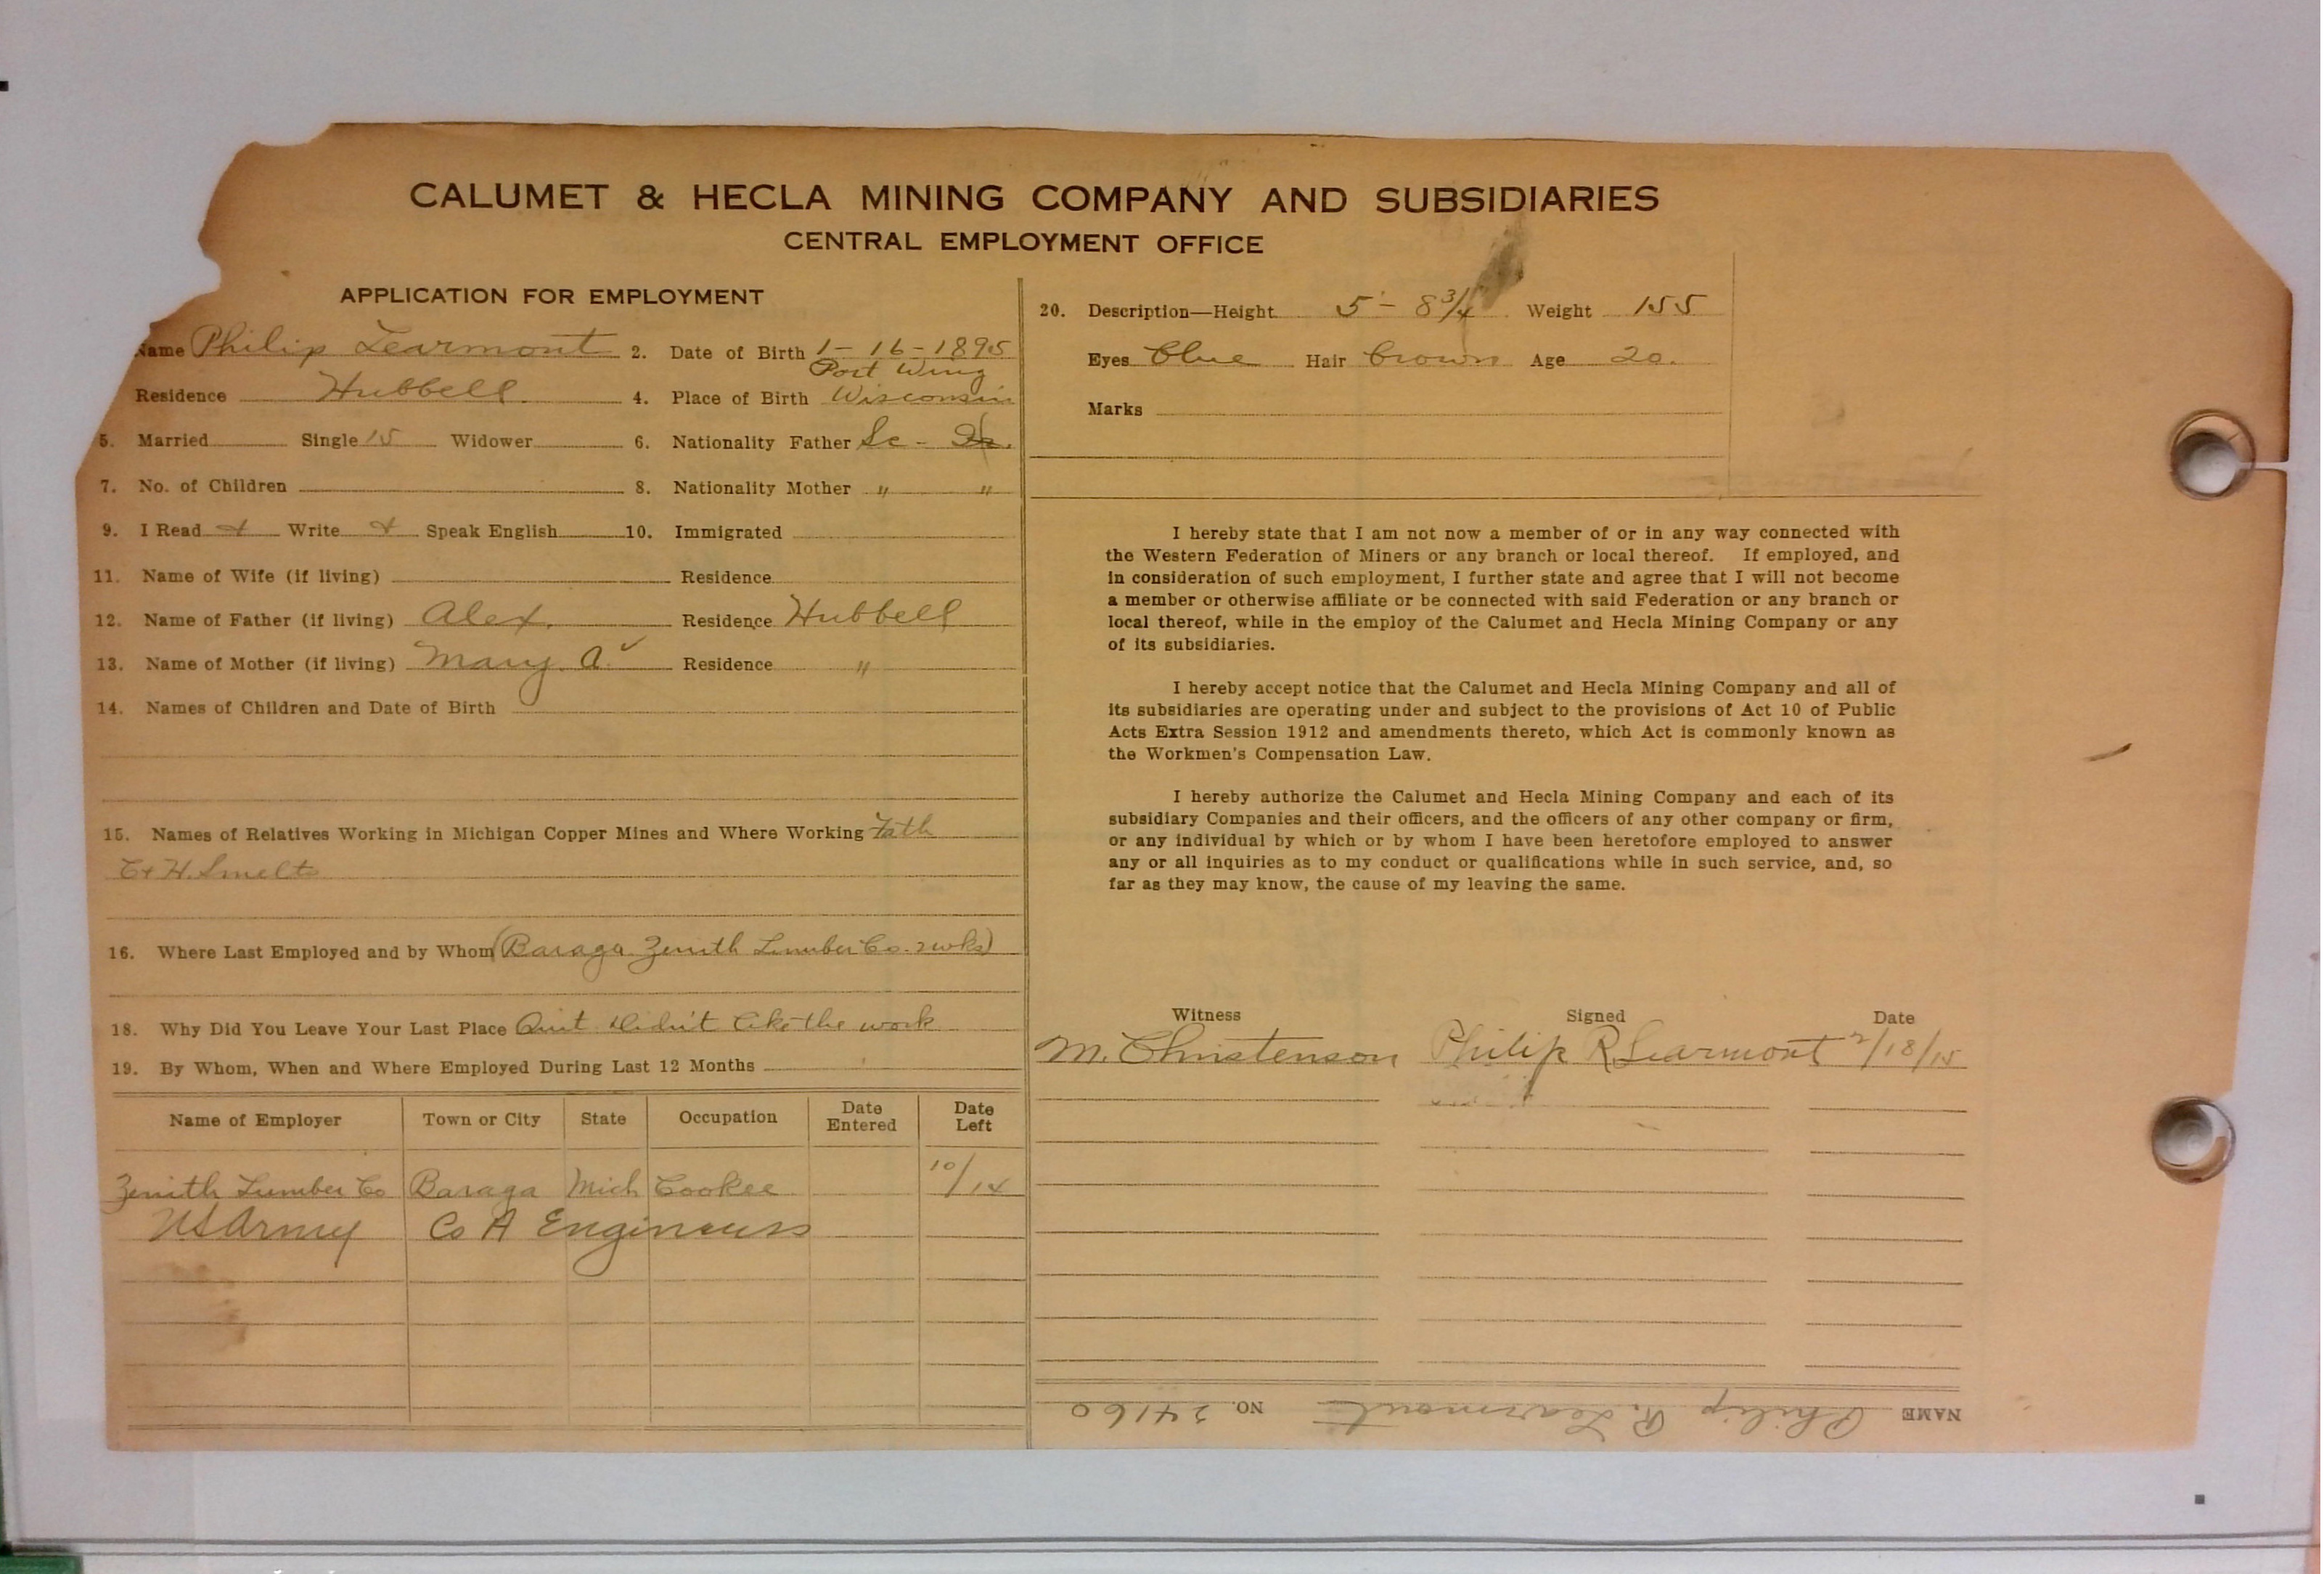 CALUMET & HECLA MINING COMPANY AND SUBSIDIARIES
CENTRAL EMPLOYMENT OFFICE
APPLICATION FOR EMPLOYMENT
Name Philip Learmont 2. Date of Birth 1-16-1895
Port Wing
Residence Hubbell 4. Place of Birth Wisconsin
5. Married Single 15 Widower 6. Nationality Father Sc -
7. No. of Children 8. Nationality Mother " "
9. I Read + Write + Speak English 10. Immigrated
11. Name of Wife (if living) Residence
12. Name of Father (if living) Alex. Residence Hubbell
13. Name of Mother (if living) Mary. A. Residence "
14. Names of Children and Date of Birth
15. Names of Relatives Working in Michigan Copper Mines and Where Working Fath
C + H. Smelt
16. Where Last Employed and by Whom (Baraga Zenith Lumber Co. 2 wks)
18. Why Did You Leave Your Last Place Quit Didn't like the work
19. By Whom, When and Where Employed During Last 12 Months
Name of Employer Town or City State Occupation Date Entered Date Left
Zenith Lumber Co Baraga Mich Cookee 10/14
US Army Co A Engineers
20. Description—Height 5'- 8 3/4 Weight 155
Eyes blue Hair brown Age 20.
Marks
I hereby state that I am not now a member of or in any way connected with
the Western Federation of Miners or any branch or local thereof. If employed, and
in consideration of such employment, I further state and agree that I will not become
a member or otherwise affiliate or be connected with said Federation or any branch or
local thereof, while in the employ of the Calumet and Hecla Mining Company or any
of its subsidiaries.
I hereby accept notice that the Calumet and Hecla Mining Company and all of
its subsidiaries are operating under and subject to the provisions of Act 10 of Public
Acts Extra Session 1912 and amendments thereto, which Act is commonly known as
the Workmen's Compensation Law.
I hereby authorize the Calumet and Hecla Mining Company and each of its
subsidiary Companies and their officers, and the officers of any other company or firm,
or any individual by which or by whom I have been heretofore employed to answer
any or all inquiries as to my conduct or qualifications while in such service, and, so
far as they may know, the cause of my leaving the same.
Witness Signed Date
M. Christenson Philip R Learmont 2/18/15
NAME Philip R. Learmont NO. 24160